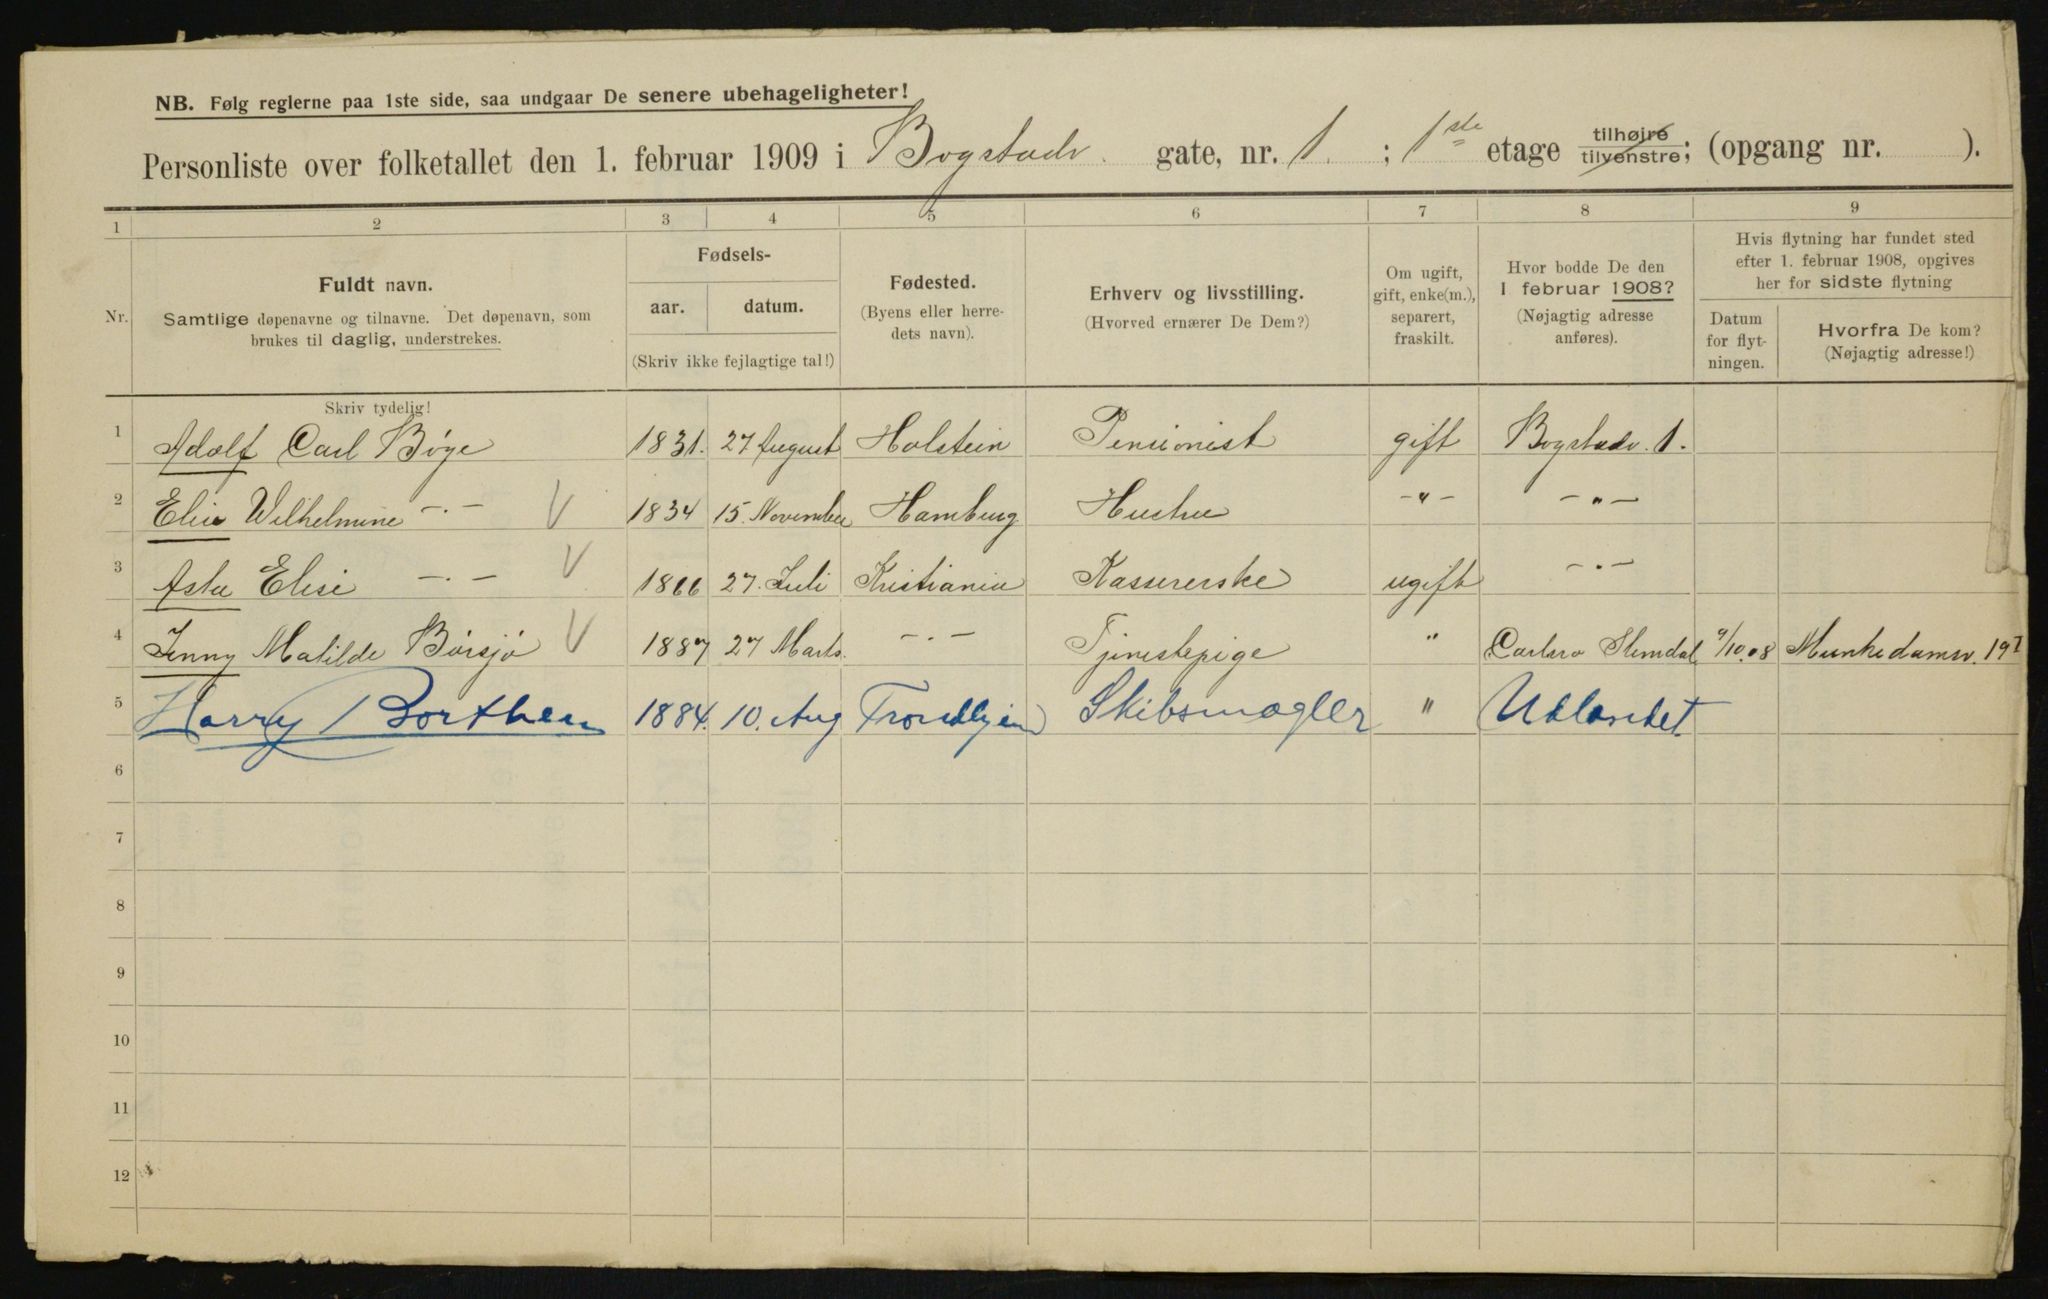 NB. Følg reglerne paa 1ste side, saa undgaar De senere ubehageligheter!
Personliste over folketallet den 1. februar 1909 i Bogstadv. gate, nr. 1 ; 1ste etage tilhøire tilvenstre; (opgang nr. ).
1 2 3 4 5 6 7 8 9
Nr.
Fuldt navn.
Samtlige døpenavne og tilnavne. Det døpenavn, som
brukes til daglig, understrekes.
Skriv tydelig!
Fødsels-
aar. datum.
(Skriv ikke fejlagtige tal!)
Fødested.
(Byens eller herre-
dets navn).
Erhverv og livsstilling.
(Hvorved ernærer De Dem?)
Om ugift,
gift, enke(m.),
separert,
fraskilt.
Hvor bodde De den
1 februar 1908?
(Nøjagtig adresse
anføres).
Hvis flytning har fundet sted
efter 1. februar 1908, opgives
her for sidste flytning
Datum
for flyt-
ningen.
Hvorfra De kom?
(Nøjagtig adresse!)
1 Adolf Carl Bøge 1831. 27 August Holstein Pensionist gift Bogstadv. 1.
2 Elise Wilhelmine -"- 1834 15. November Hamburg Hustru -"- -"-
3 Asta Elise -"- 1866 27. Juli Kristiania Kassererske ugift -"-
4 Jenny Matilde Børsjø 1887 27 Marts -"- Tjenestepige " Carlsro Slemdal 9/10.08 Munkedamsv.
5 Harry Borthen 1884. 10. Aug Trondhjem Skibsmægler " Udlandet.
6
7
8
9
10
11
12